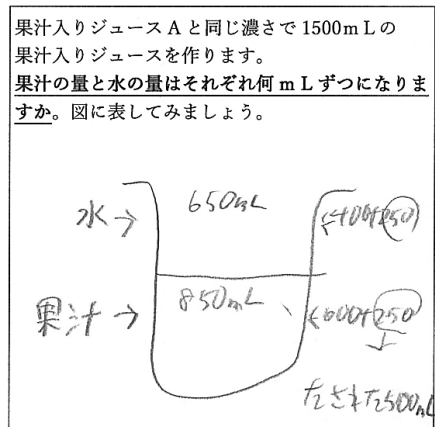 果汁入りジュースAと同じ濃さで1500mLの
果汁入りジュースを作ります。
果汁の量と水の量はそれぞれ何mLずつになりま
すか。図に表してみましょう。
水→ 650mL (400+250)
果汁→ 850mL (600+250)
↓
たされた500mL